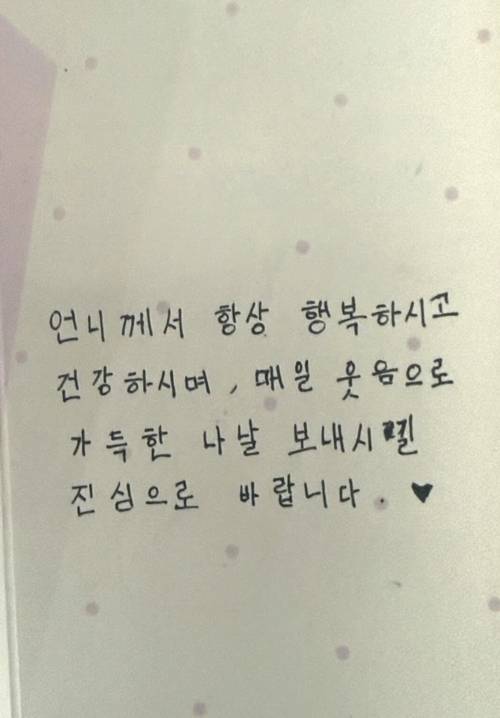 언니께서 항상 행복하시고
건강하시며, 매일 웃음으로
가득한 나날 보내시길
진심으로 바랍니다. ♥